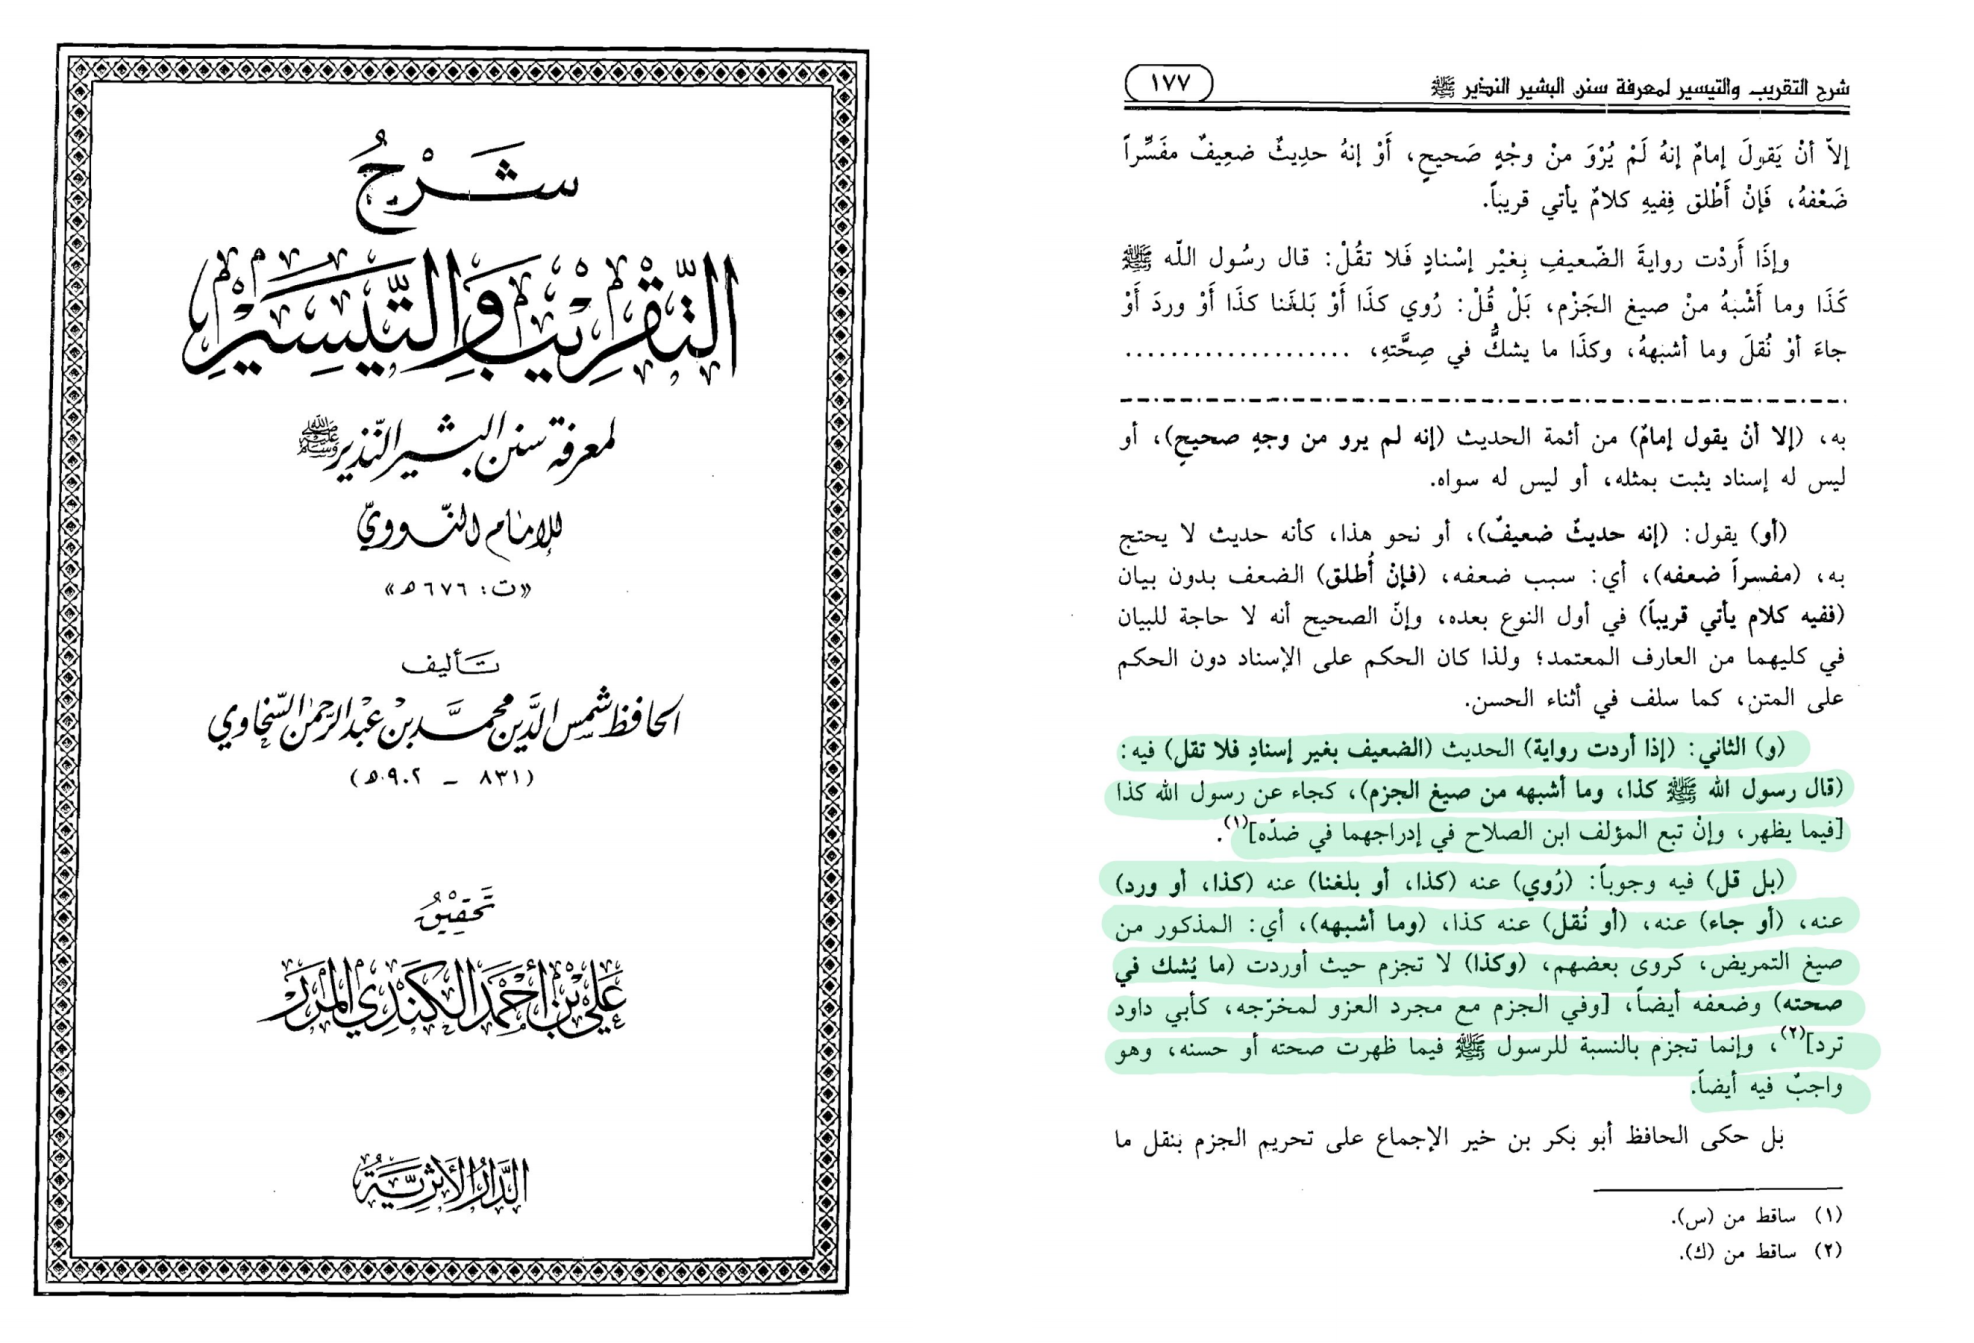 شَرْحُ
التَّقْرِيْبِ وَالتَّيْسِيْرِ
لمعرفة سنن البشير النذير ﷺ
للإمام النووي
«ت: ٦٧٦هـ»
تأليف
الحافظ شمس الدين محمد بن عبد الرحمن السخاوي
(٨٣١ – ٩٠٢هـ)
تحقيق
علي بن أحمد الكندي المرر
الدار الأثرية
شرح التقريب والتيسير لمعرفة سنن البشير النذير ﷺ
١٧٧
إلاّ أنْ يَقولَ إمامٌ إنهُ لَمْ يُرْوَ منْ وجْهٍ صَحيحٍ، أَوْ إنهُ حدِيثٌ ضعِيفٌ مفَسِّراً
ضَعْفهُ، فَإنْ أَطْلق فِفيهِ كلامٌ يأتي قريباً.
وإذَا أَردْت روايةَ الضّعيفِ بِغيْر إسْنادٍ فَلا تقُلْ: قال رسُول اللّه ﷺ
كَذَا وما أَشْبهُ منْ صيغ الجَزْم، بَلْ قُلْ: رُوي كذَا أَوْ بَلغَنا كذَا أَوْ وردَ أَوْ
جاءَ أوْ نُقلَ وما أشبههُ، وكذَا ما يشكُّ في صِحَّتهِ، ....................
به، (إلا أنْ يقول إمامٌ) من أئمة الحديث (إنه لم يرو من وجهٍ صحيحٍ)، أو
ليس له إسناد يثبت بمثله، أو ليس له سواه.
(أو) يقول: (إنه حديثٌ ضعيفٌ)، أو نحو هذا، كأنه حديث لا يحتج
به، (مفسراً ضعفه)، أي: سبب ضعفه، (فإنْ أُطلق) الضعف بدون بيان
(ففيه كلام يأتي قريباً) في أول النوع بعده، وإنّ الصحيح أنه لا حاجة للبيان
في كليهما من العارف المعتمد؛ ولذا كان الحكم على الإسناد دون الحكم
على المتن، كما سلف في أثناء الحسن.
(و) الثاني: (إذا أردت رواية) الحديث (الضعيف بغير إسنادٍ فلا تقل) فيه:
(قال رسول الله ﷺ كذا، وما أشبهه من صيغ الجزم)، كجاء عن رسول الله كذا
[فيما يظهر، وإنْ تبع المؤلف ابن الصلاح في إدراجهما في ضدّه](١).
(بل قل) فيه وجوباً: (رُوي) عنه (كذا، أو بلغنا) عنه (كذا، أو ورد)
عنه، (أو جاء) عنه، (أو نُقل) عنه كذا، (وما أشبهه)، أي: المذكور من
صيغ التمريض، كروى بعضهم، (وكذا) لا تجزم حيث أوردت (ما يُشك في
صحته) وضعفه أيضاً، [وفي الجزم مع مجرد العزو لمخرّجه، كأبي داود
ترد](٢)، وإنما تجزم بالنسبة للرسول ﷺ فيما ظهرت صحته أو حسنه، وهو
واجبٌ فيه أيضاً.
بل حكى الحافظ أبو بكر بن خير الإجماع على تحريم الجزم بنقل ما
(١) ساقط من (س).
(٢) ساقط من (ك).